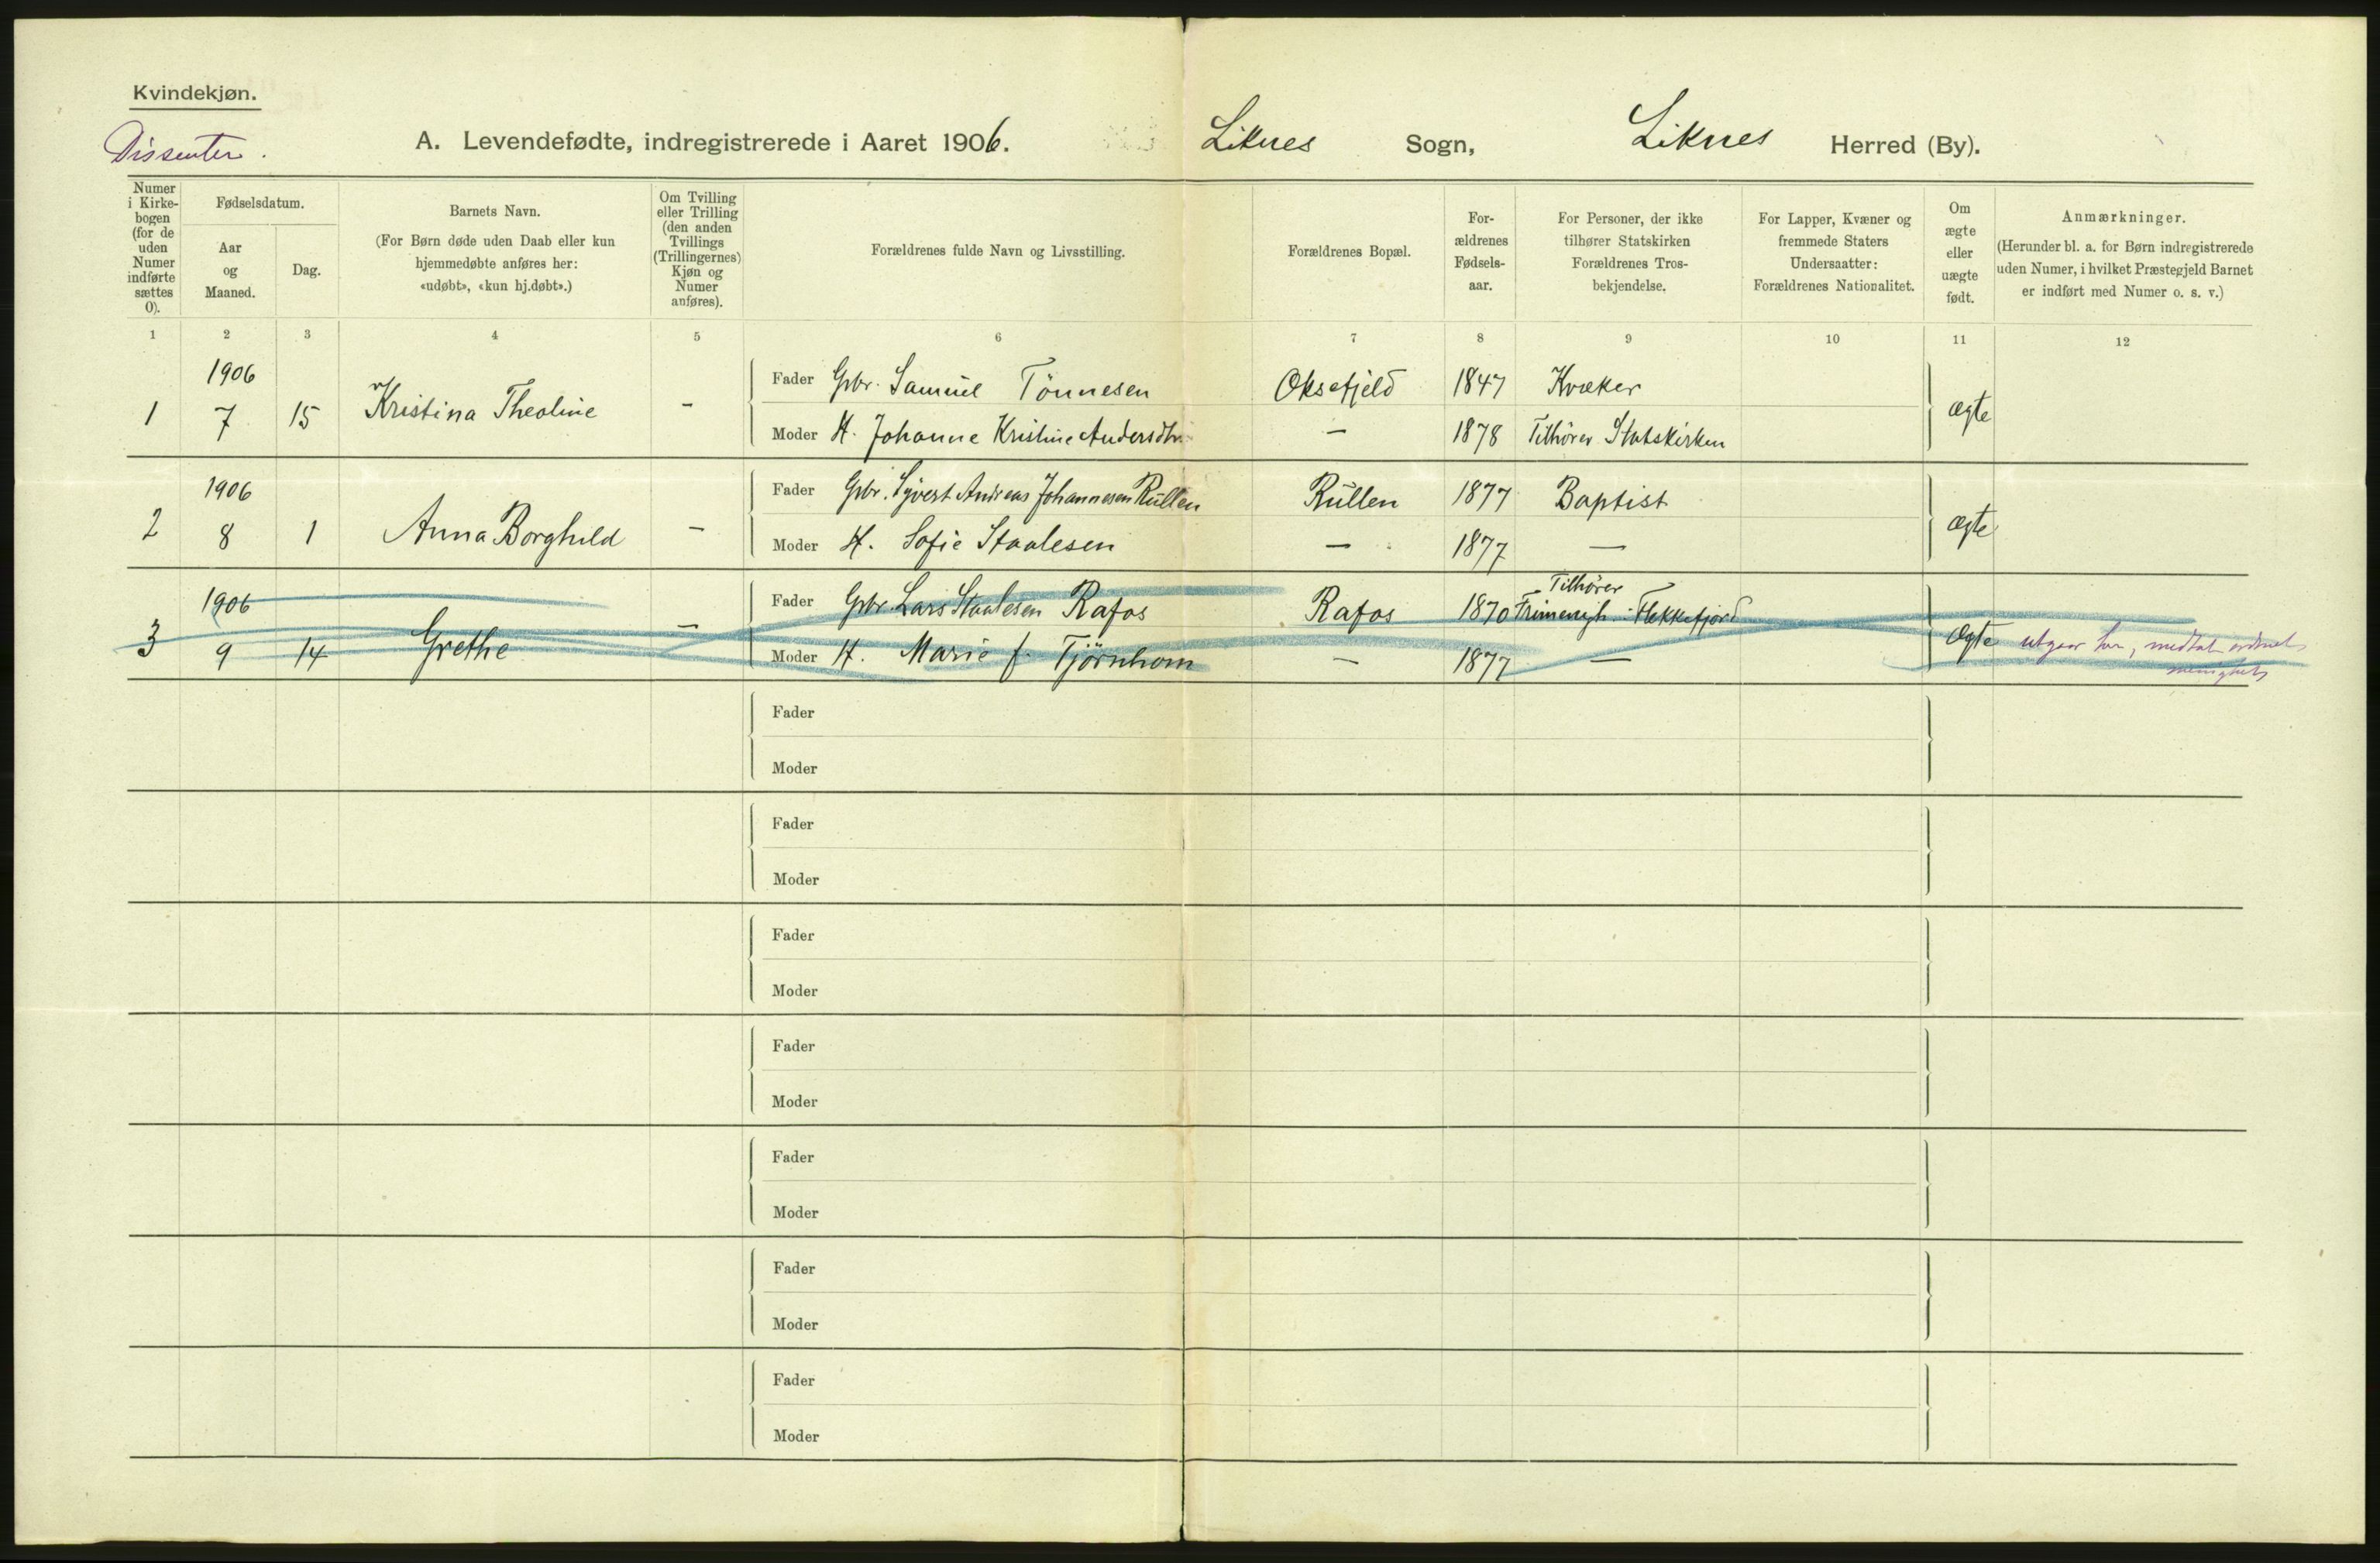 Kvindekjøn.
Dissenter.
A. Levendefødte, indregistrerede i Aaret 1906. Liknes Sogn, Liknes Herred (By).
Numer
i Kirke-
bogen
(for de
uden
Numer
indførte
sættes
0).
Fødselsdatum.
Aar
og
Maaned.
Dag.
Barnets Navn.
(For Børn døde uden Daab eller kun
hjemmedøbte anføres her:
«udøbt», «kun hj.døbt».)
Om Tvilling
eller Trilling
(den anden
Tvillings
(Trillingernes)
Kjøn og
Numer
anføres).
Forældrenes fulde Navn og Livsstilling.
Forældrenes Bopæl.
For-
ældrenes
Fødsels-
aar.
For Personer, der ikke
tilhører Statskirken
Forældrenes Tros-
bekjendelse.
For Lapper, Kvæner og
fremmede Staters
Undersaatter:
Forældrenes Nationalitet.
Om
ægte
eller
uægte
født.
Anmærkninger.
(Herunder bl. a. for Børn indregistrerede
uden Numer, i hvilket Præstegjeld Barnet
er indført med Numer o. s. v.)
1 2 3 4 5 6 7 8 9 10 11 12
1906
1 7 15 Kristina Theoline -
Fader Gbr. Samuel Tönnesen Oksefjeld 1847 Kvæker
Moder H. Johanne Kristine Andersdtr. - 1878 Tilhörer Statskirken
ægte
1906
2 8 1 Anna Borghild -
Fader Gbr. Syvert Andreas Johannesen Rullen Rullen 1877 Baptist
Moder H. Sofie Staalesen - 1877 -
ægte
1906
3 9 14 Grethe -
Fader Gbr. Lars Staalesen Rafos Rafos 1870 Tilhörer
Frimenigh. Flekkefjord
Moder H. Marie f. Tjörnhom - 1877 -
ægte utgaar her, medtat
Fader
Moder
Fader
Moder
Fader
Moder
Fader
Moder
Fader
Moder
Fader
Moder
Fader
Moder